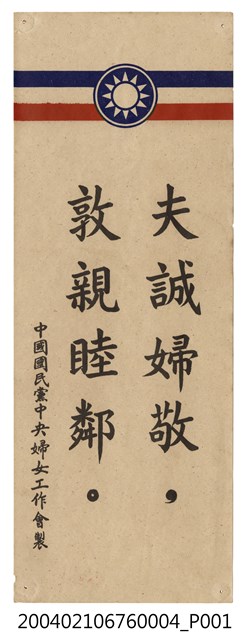 夫誠婦敬，
敦親睦鄰。
中國國民黨中央婦女工作會製
200402106760004_P001